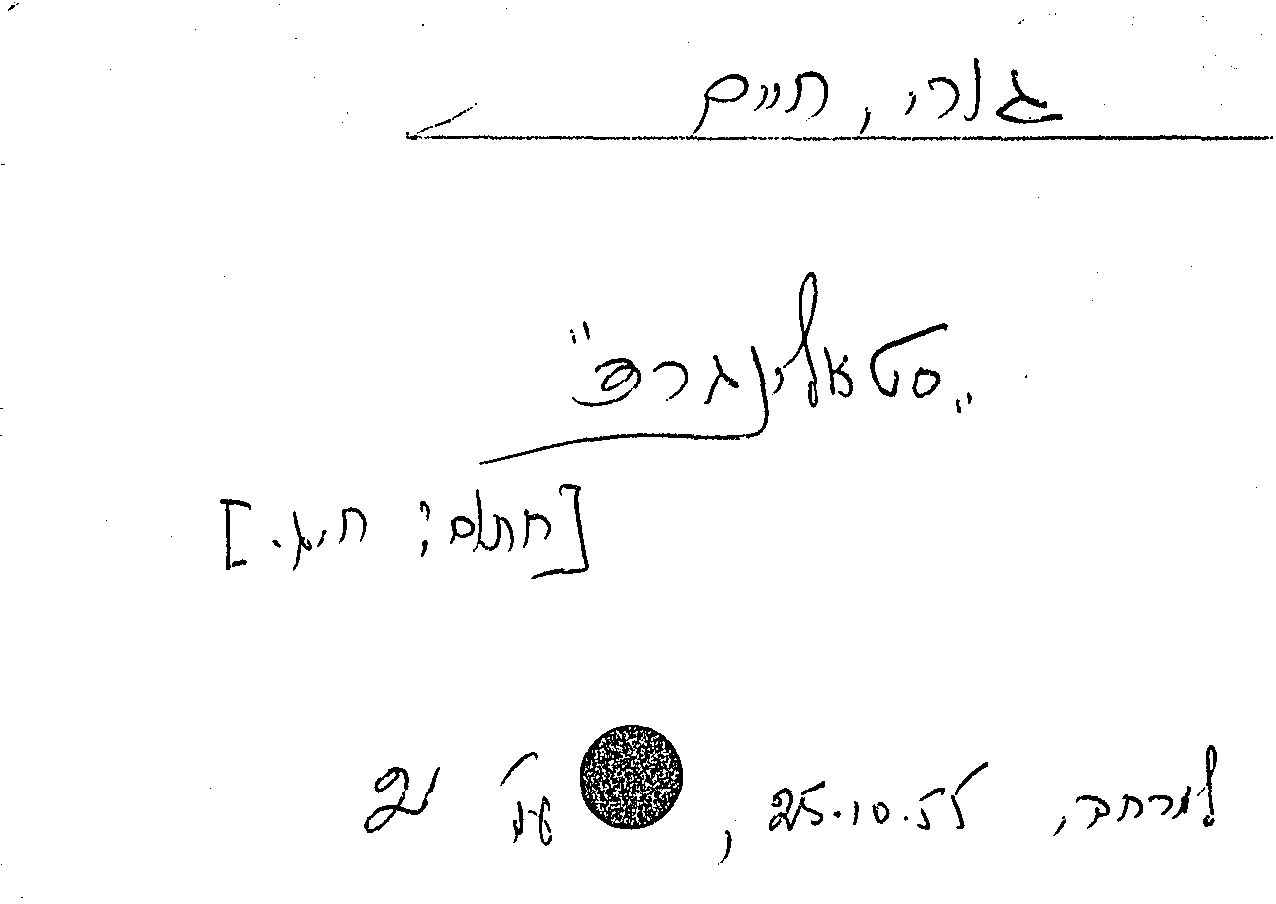 גורי, חיים
"סטאלינגרד"
[חתום: ח.ג.]
למרחב, 25.10.55, עמ' 2